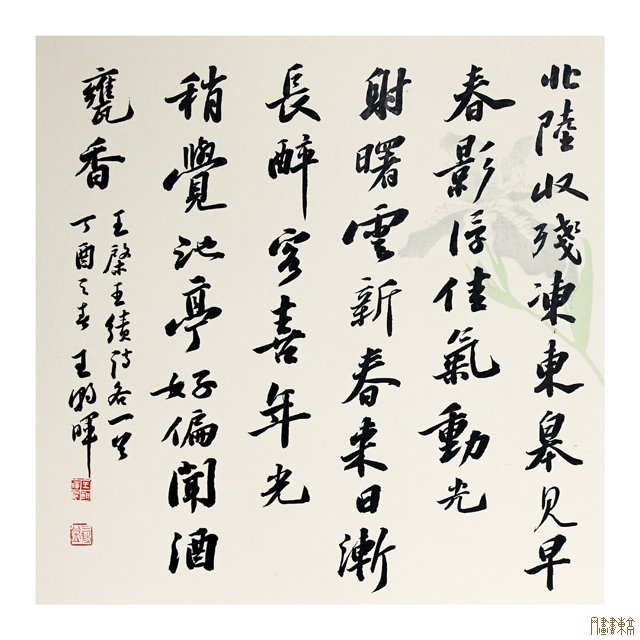 北陸收殘凍東皋見早
春影浮佳氣動光
射曙雲新春來日漸
長醉客喜年光
稍覺池亭好偏聞酒
甕香
王棨王績詩各一首
丁酉之春王暉